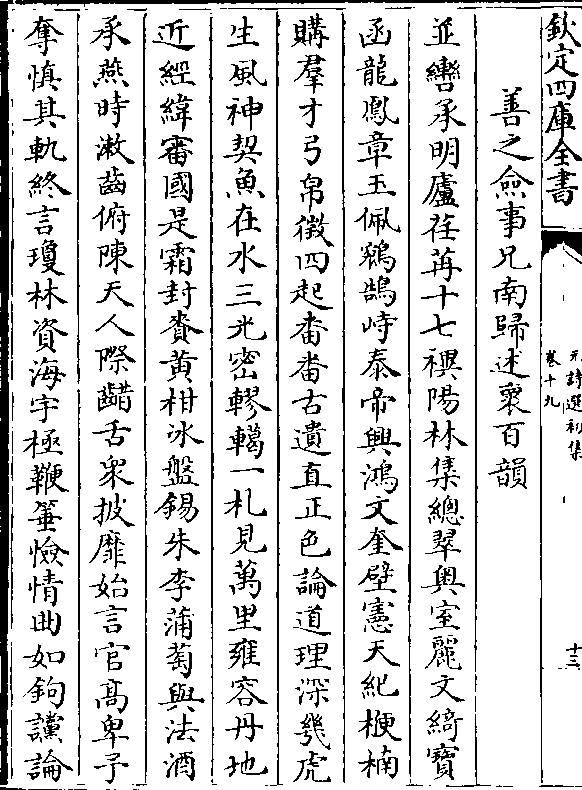 欽定四庫全書
元詩選初集
卷十九
十三
善之僉事兄南歸述衷百韻
並轡承明廬荏苒十七禩陽林集總翠奥室麗文綺寶
函龍鳳章玉佩鵷鵠峙泰帝興鴻文奎壁憲天紀楩楠
購羣才弓帛徵四起畨畨古遺直正色論道理深幾虎
生風神契魚在水三光密轇轕一札見萬里雍容丹地
近經緯審國是霜封賚黄柑冰盤錫朱李蒲萄與法酒
承燕時漱齒俯陳天人際齰舌衆披靡始言官髙卑予
奪慎其軌終言瓊林資海宇極鞭箠憸情曲如鉤讜論